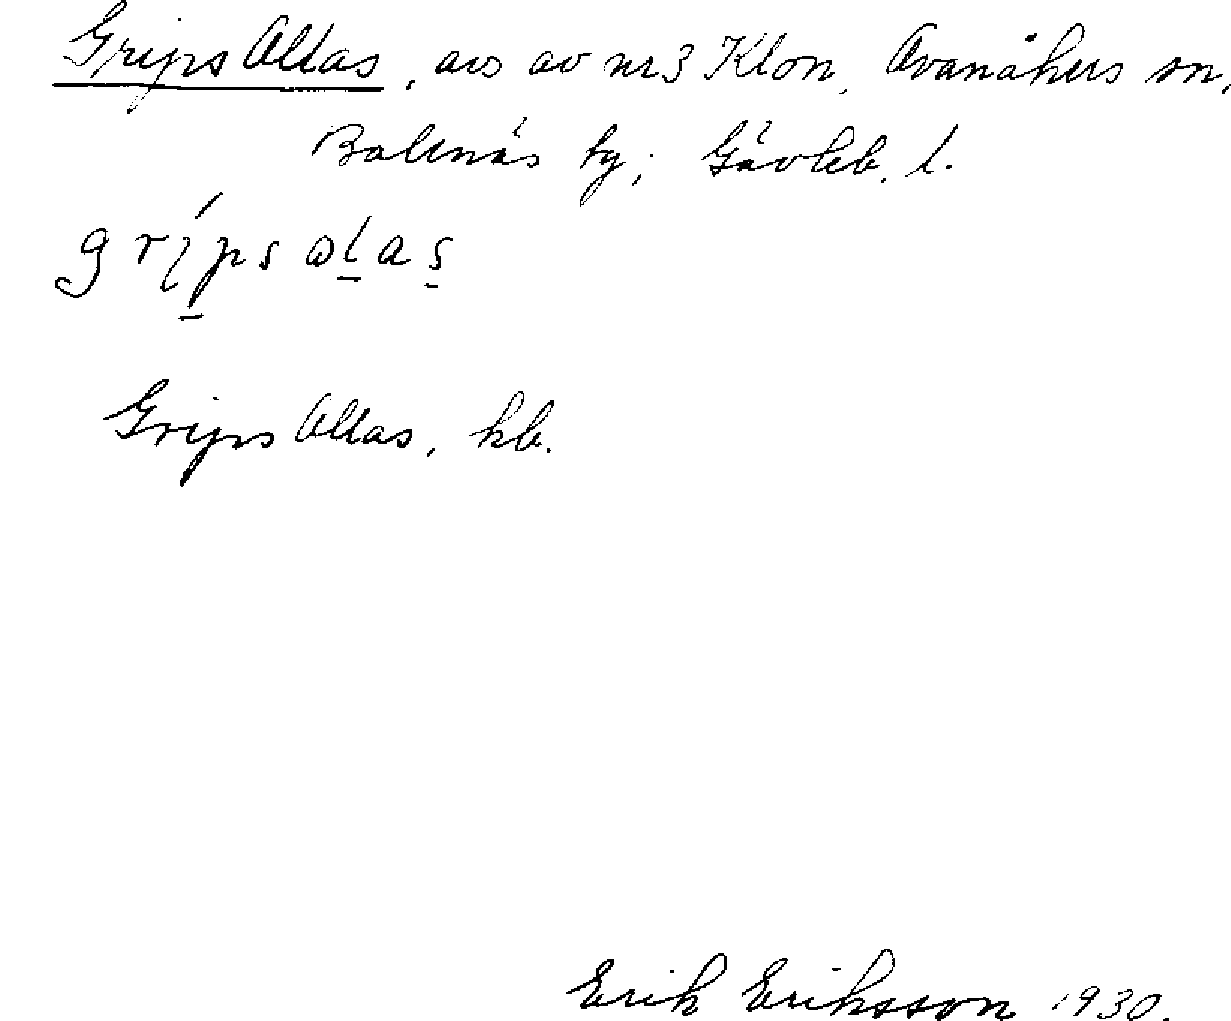 Grips Allas, avs av nr 3 Klon, Avanåkers sn,
Bollnäs ty; Gävleb. l.
grípsalas
Grips Allas, kb.
Erik Eriksson 1930.